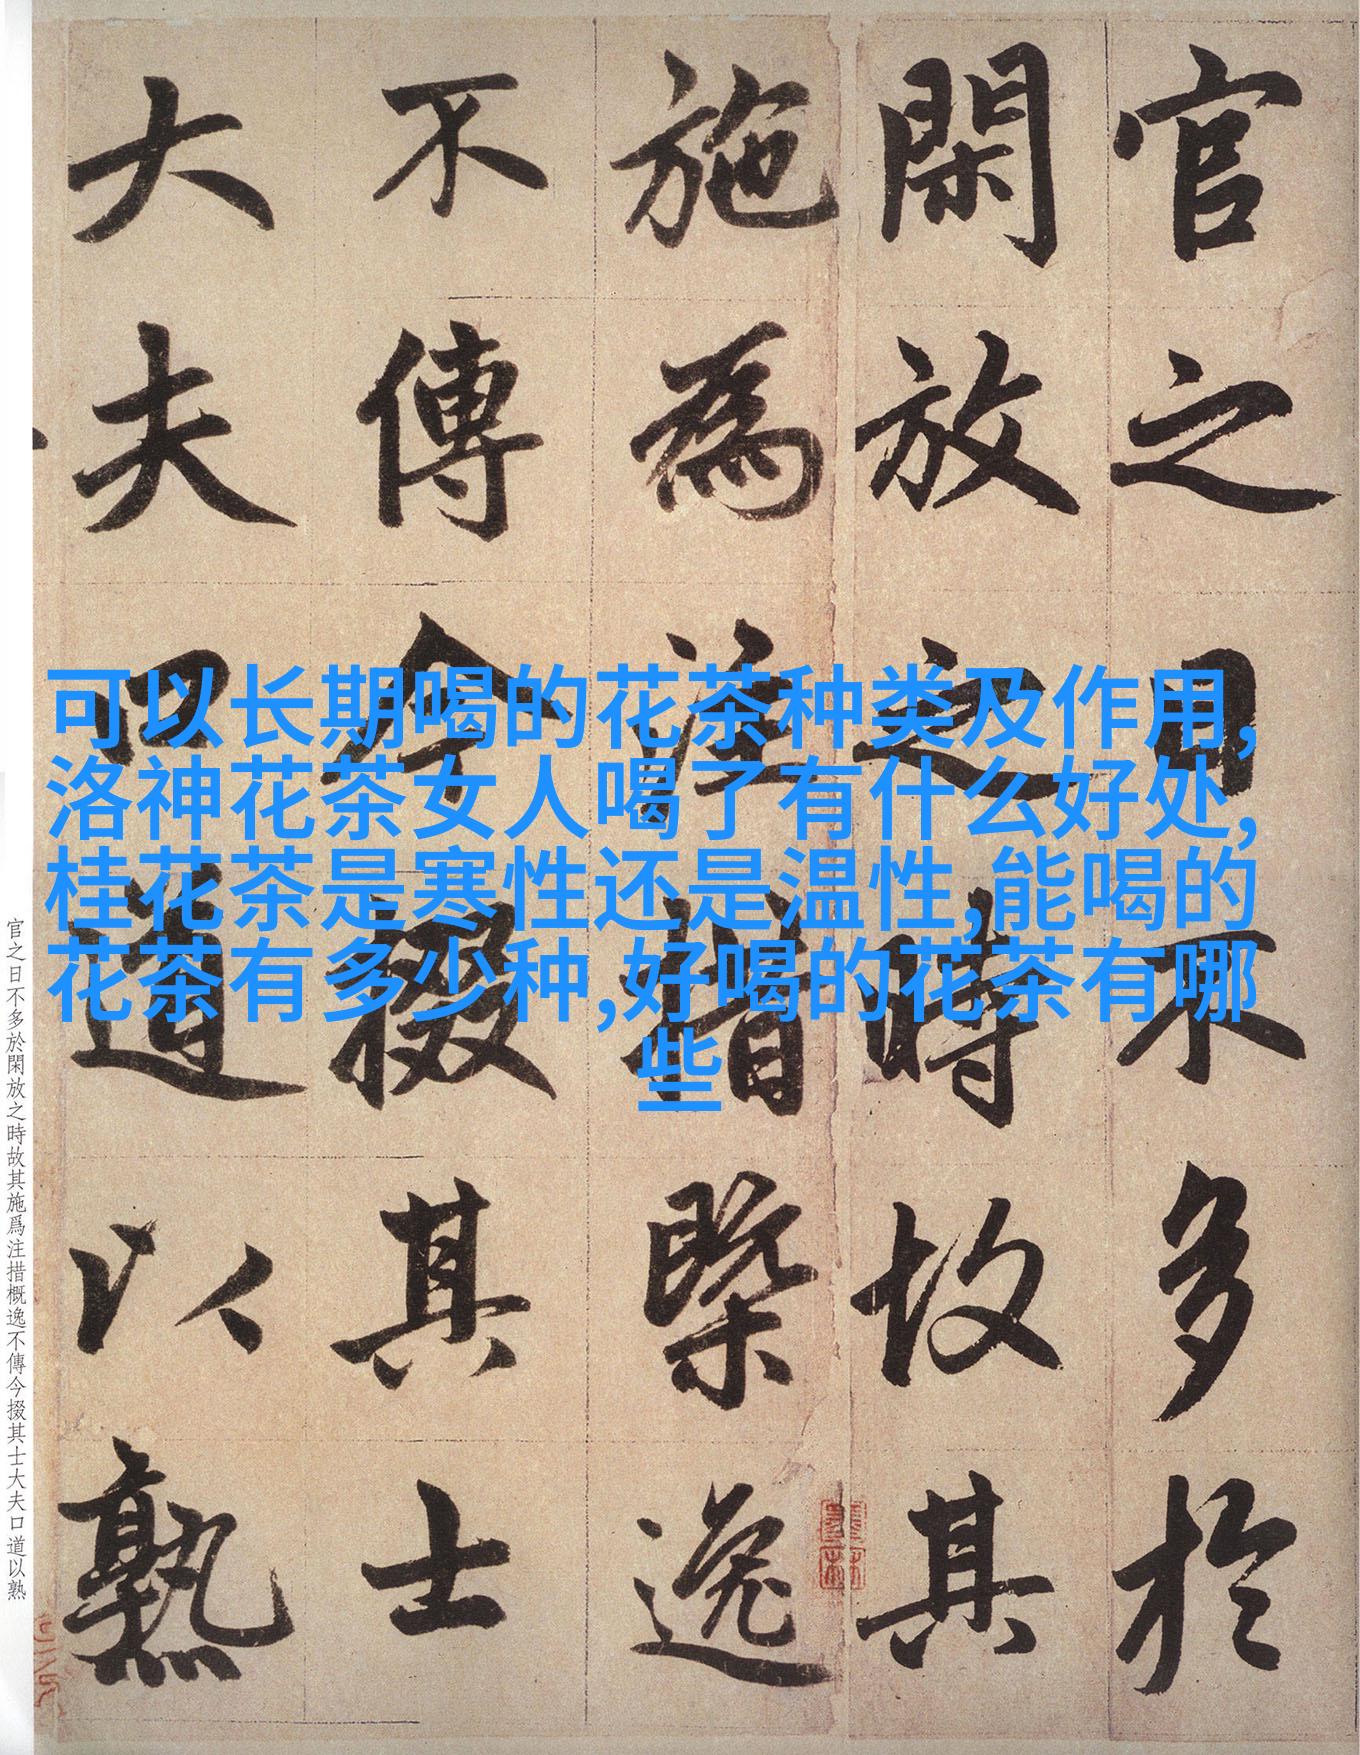 官之日不多於
閑放之時故其
施為注措槩逸
不傳今掇其士
大夫口道以熟
可以长期喝的花茶种类及作用,
洛神花茶女人喝了有什么好处,
桂花茶是寒性还是温性,能喝的
花茶有多少种,好喝的花茶有哪
些
官之日不多於閑放之時故其施爲注措概逸不傳今掇其士大夫口道以熟